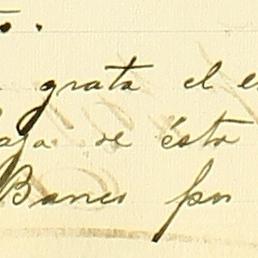 to.
grata el e
aja de ésta
Banco por